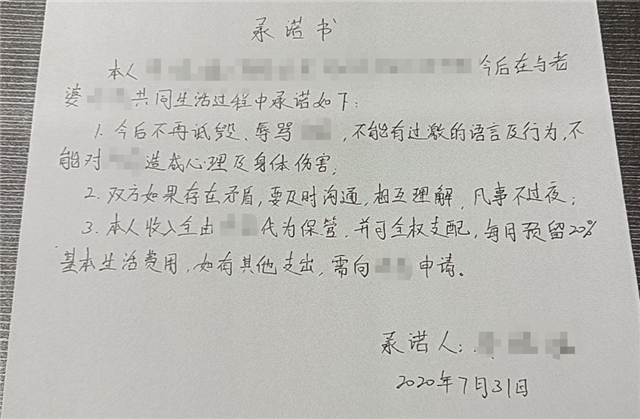 承诺书
本人 今后在与老
婆 共同生活过程中承诺如下：
1. 今后不再诋毁、辱骂 ，不能有过激的语言及行为，不
能对 造成心理及身体伤害；
2. 双方如果存在矛盾，要及时沟通，相互理解，凡事不过夜；
3. 本人收入全由 代为保管，并可全权支配，每月预留20%
基本生活费用，如有其他支出，需向 申请。
承诺人：
2020年7月31日